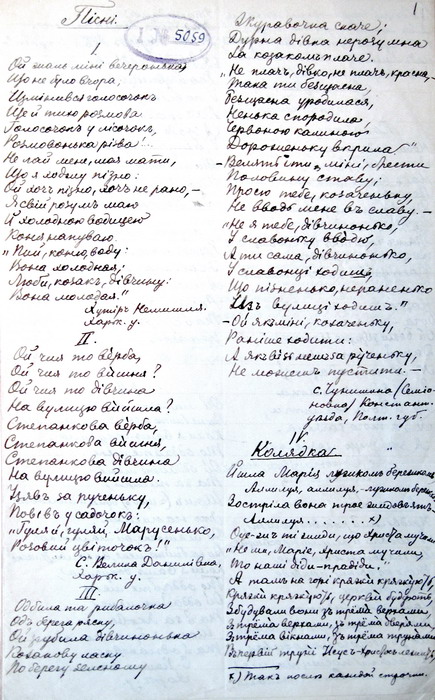 Пісні.
1
5059
I.
Ой жаль міні вечоронька,
Що не було вчора,
Измінився голосочок
Ще й тихо розмова.
Голосочок у лісочок,
Розмовонька рівна!..
Не лай мене, моя мати,
Що я ходжу пізно:
Ой хоч пізно, хоч не рано, –
Я свій розум маю
Й холодною водицею
Коня напуваю.
„Пий, коню, воду:
Вона холодная;
Люби, козак, дівчину:
Вона молодая."
Хутір
Харьк. у.
II.
Ой чия то вѐрба,
Ой чия то вишня?
Ой чия то дівчина
На вулицю вийшла?
Степанкова вѐрба,
Степанкова вишня,
Степанкова дівчина
На вулицю вийшла.
Узяв за рученьку,
Повів у садочок:
„Гуляй, гуляй, Марусенько,
Розовий цвіточок!"
С. Велика Данилівка,
Харьк. у.
III.
Одбила та рибалочка
Одъ берега ряску,
Ой любила дівчинонька
Козакову ласку
По берегу зеленому
Журавочка скаче;
Дурна дівка нерозумна
За козаком плаче.
„Не плач, дівко, не плач, красна,
Така ти безщасна,
Безщасна уродилася,
Ненька спородила,
Червоною калиною
Дороженьку вкрила." –
– іти міні, брести
Половину ставу;
Прошу тебе, козаченьку,
Не вводь мене въ славу. –
„Не я тебе, дівчинонько,
У славоньку вводю,
А ти сама, дівчинонько,
У славонці ходиш,
Що пізненько, нераненько
Изъ вулиці ходиш."
– Ой як міні, козаченьку,
Раніше ходити:
А як візьмеш за рученьку,
Не можеш пустити. –
с. (Семе-
новка) Констант.
уѣзда, Полт. губ.
IV.
Колядка.
Йшла Марія бережком
Алилуя, алилуя,
Зостріла вона троє жидовят,
Аллилуя........ х)
жиди, що Христа мучили
„Не ми, Маріє, Христа мучили,
То наші діди-прадіди."
А тамъ на горі
церкви будують,
Збудували вони зъ трёма верхами,
Зъ трёма верхами, зъ трёма дверями,
Зъ трёма вікнами, зъ трёма трунами.
В первій труні Исусъ-Христосъ
х) Такъ послѣ каждой строчки.